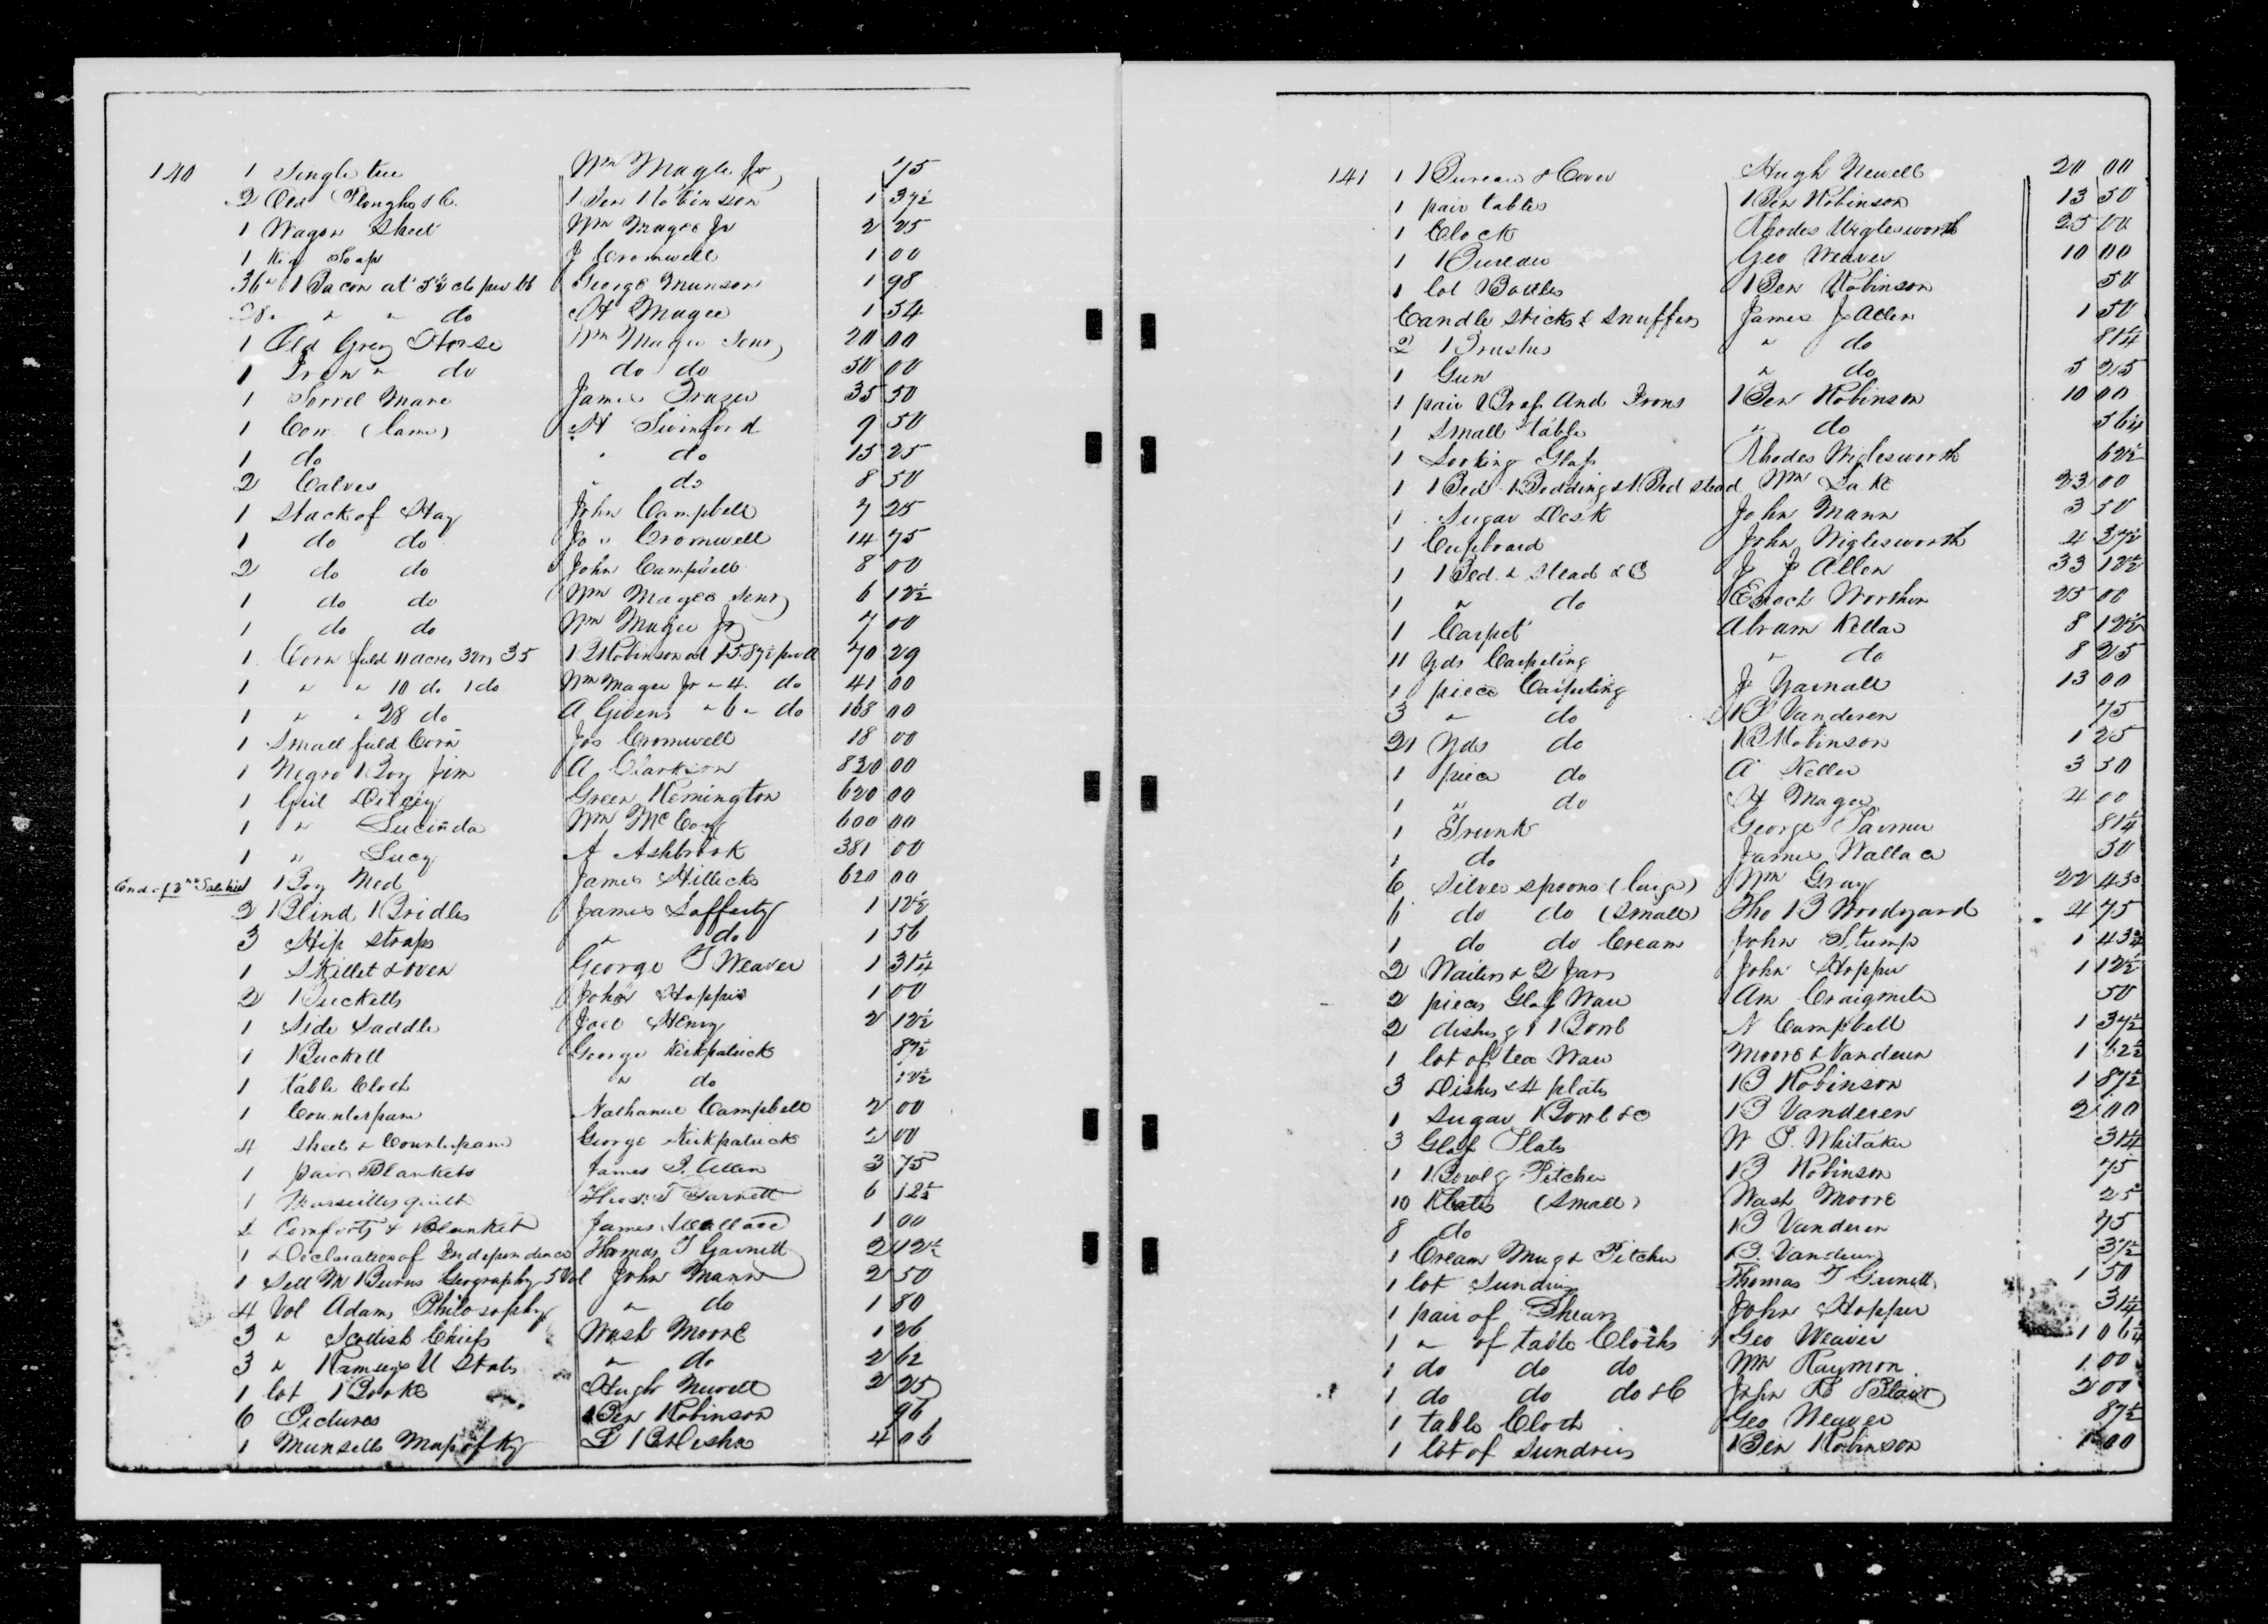 140 1 Single tree Wm Magee Jr 75
2 Old Ploughs &C. Ben Robinson 1 37½
1 Wagon Sheet Wm Magee Jr 2 25
1 Keg Soap J Cromwell 1 00
36 " Bacon at 5½ cts per lb George Munson 1 98
28 " " " do H Magee 1 54
1 Old Grey Horse Wm Magee Senr 20 00
1 Iron " do do do 50 00
1 Sorrel Mare James Frazer 35 50
1 Cow (lame) H Swinford 9 50
1 do " do 15 25
2 Calves " do 8 50
1 Stack of Hay John Campbell 7 25
1 do do Jo " Cromwell 14 75
2 do do John Campbell 8 00
1 do do Wm Magee Senr 6 12½
1 do do Wm Magee Jr 7 00
1 Corn field 11 acres 3 35 B Robinson at $5.87½ per A 70 29
1 " " 10 do 1 do Wm Magee Jr " 4. do 41 00
1 " " 28 do A Givens " 6 " do 168 00
1 Small field Corn Jos Cromwell 18 00
1 Negro Boy Jim A Clarkson 820 00
1 Girl Dilcey Green Remington 620 00
1 " Lucinda Wm McCoy 600 00
1 " Lucy A Ashbrook 381 00
End of 2nd Sale bill 1 Boy Ned James Hillecks 620 00
2 Blind Bridles James Lafferty 1 12½
3 Hip straps " do 1 56
1 Skillet & oven George T Weaver 1 31¼
2 Bucketts John Hopper 1 00
1 Side Saddle Joel Henry 2 12½
1 Buckett George Kirkpatrick 87½
1 table Cloth " do 12½
1 Counterpane Nathaniel Campbell 2 00
4 Sheets & Counterpane George Kirkpatrick 2 00
1 pair Blankets James J. Allen 3 75
1 Marseilles quilt Thos. T Garnett 6 12½
2 Comforts & Blanket James Wallace 1 00
1 Declaration of Independence Thomas T Garnett 2 12½
1 Sett M Burns Geography 5 Vol John Mann 2 50
4 Vol Adams Philosophy " do 1 80
3 " Scotish Chiefs Wash Moore 1 26
3 " Ramseys U States " do 2 62
1 lot Books Hugh Newell 2 25
6 Pictures Ben Robinson 96
1 Munsells Map of Ky L B Desha 4 06
141 1 Bureau & Cover Hugh Newell 20 00
1 pair tables Ben Robinson 13 50
1 Clock Rhodes Wiglesworth 25 00
1 Bureau Geo Weaver 10 00
1 lot Bottles Ben Robinson 50
Candle Sticks & Snuffers James J Allen 1 50
2 Brushes " do 81¼
1 Gun " do 5 25
1 pair Brass And Irons Ben Robinson 10 00
1 Small table " do 56¼
1 Looking Glass Rhodes Wiglesworth 62½
1 Bed Bedding & Bed stead Wm Lake 23 00
1 Sugar Desk John Mann 3 50
1 Cupboard John Wiglesworth 4 37½
1 Bed & Stead &C J J Allen 33 12½
1 " do Enoch Worthen 25 00
1 Carpet Abram Kellar 8 12½
11 yds Carpeting " do 8 25
1 piece Carpeting J Yarnall 13 00
3 " do B Vanderen 75
21 Yds do B Robinson 1 25
1 piece do A Keller 3 50
1 " do H Magee 4 00
1 Trunk George Turner 81¼
1 do James Wallace 50
6 Silver spoons (large) Wm Gray 22 43
6 do do (Small) Tho B Woodyard 4 75
1 do do Cream John Stump 1 43¾
2 Waiters & 2 Jars John Hopper 1 12½
2 pieces Glass Ware Am Craigmile 50
2 dishes & 1 Bowl N Campbell 1 37½
1 lot of tea Ware Moore & Vanderen 1 62½
3 Dishes & 4 plates B Robinson 1 87½
1 Sugar Bowl &C B Vanderen 2 00
3 Glass Plates W P. Whitaker 31¼
1 Bowl & Pitcher B Robinson 75
10 Plates (Small) Wash Moore 25
8 do B Vanderen 75
1 Cream Mug & Pitcher B. Vanderen 37½
1 lot Sundries Thomas T Garnett 1 50
1 pair of Shears John Hopper 31¼
1 " of table Cloths Geo Weaver 1 06¼
1 do do do Wm Raymon 1.00
1 do do do &C John R Blair 2 00
1 table Cloth Geo Weaver 87½
1 lot of Sundries Ben Robinson 1 00